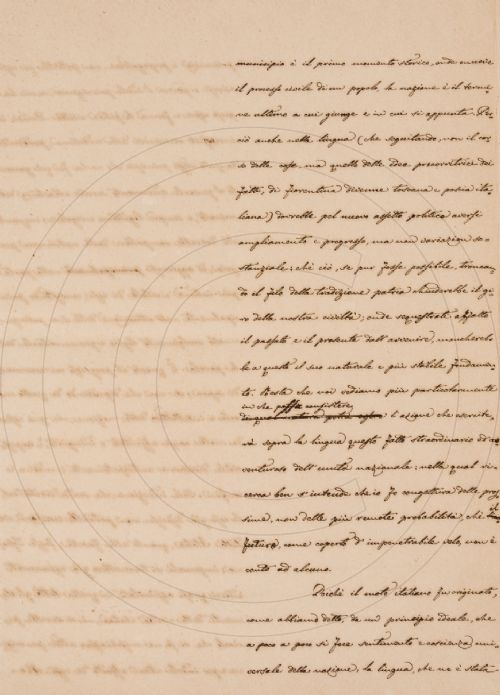 municipio è il primo momento storico, onde muove
il processo civile di un popolo, la nazione è il termi-
ne ultimo a cui giunge e in cui si appunta. Per-
ciò anche nella lingua (che seguitando, non il cor-
so delle cose, ma quello delle idee precorritrici dei
fatti, di fiorentina divenne toscana e poscia ita-
liana) dovrebbe pel nuovo assetto politico aversi
ampliamento e progresso, ma non variazione so-
stanziale; chè ciò, se pur fosse possibile, tronca-
to il filo della tradizione patria chiuderebbe il gi-
ro della nostra civiltà; onde sequestrati affatto
il passato e il presente dall'avvenire, mancherebb-
e a questi il suo naturale e più stabile fondamen-
to. Resta che noi vediamo più particolarmente
in che possa consistere
di qual natura potrà essere l'azione che esercite-
rà sopra la lingua questo fatto straordinario ed av-
venturoso dell'unità nazionale: nella qual ri-
cerca ben s'intende ch'io fo congettura delle pros-
sime, non delle più remote probabilità, chè il
futuro, come coperto d'impenetrabile velo, non è
conto ad alcuno.
Poichè il moto italiano fu originato,
come abbiamo detto, da un principio ideale, che
a poco a poco si fece sentimento e coscienza uni-
versale della nazione, la lingua, che ne è stata